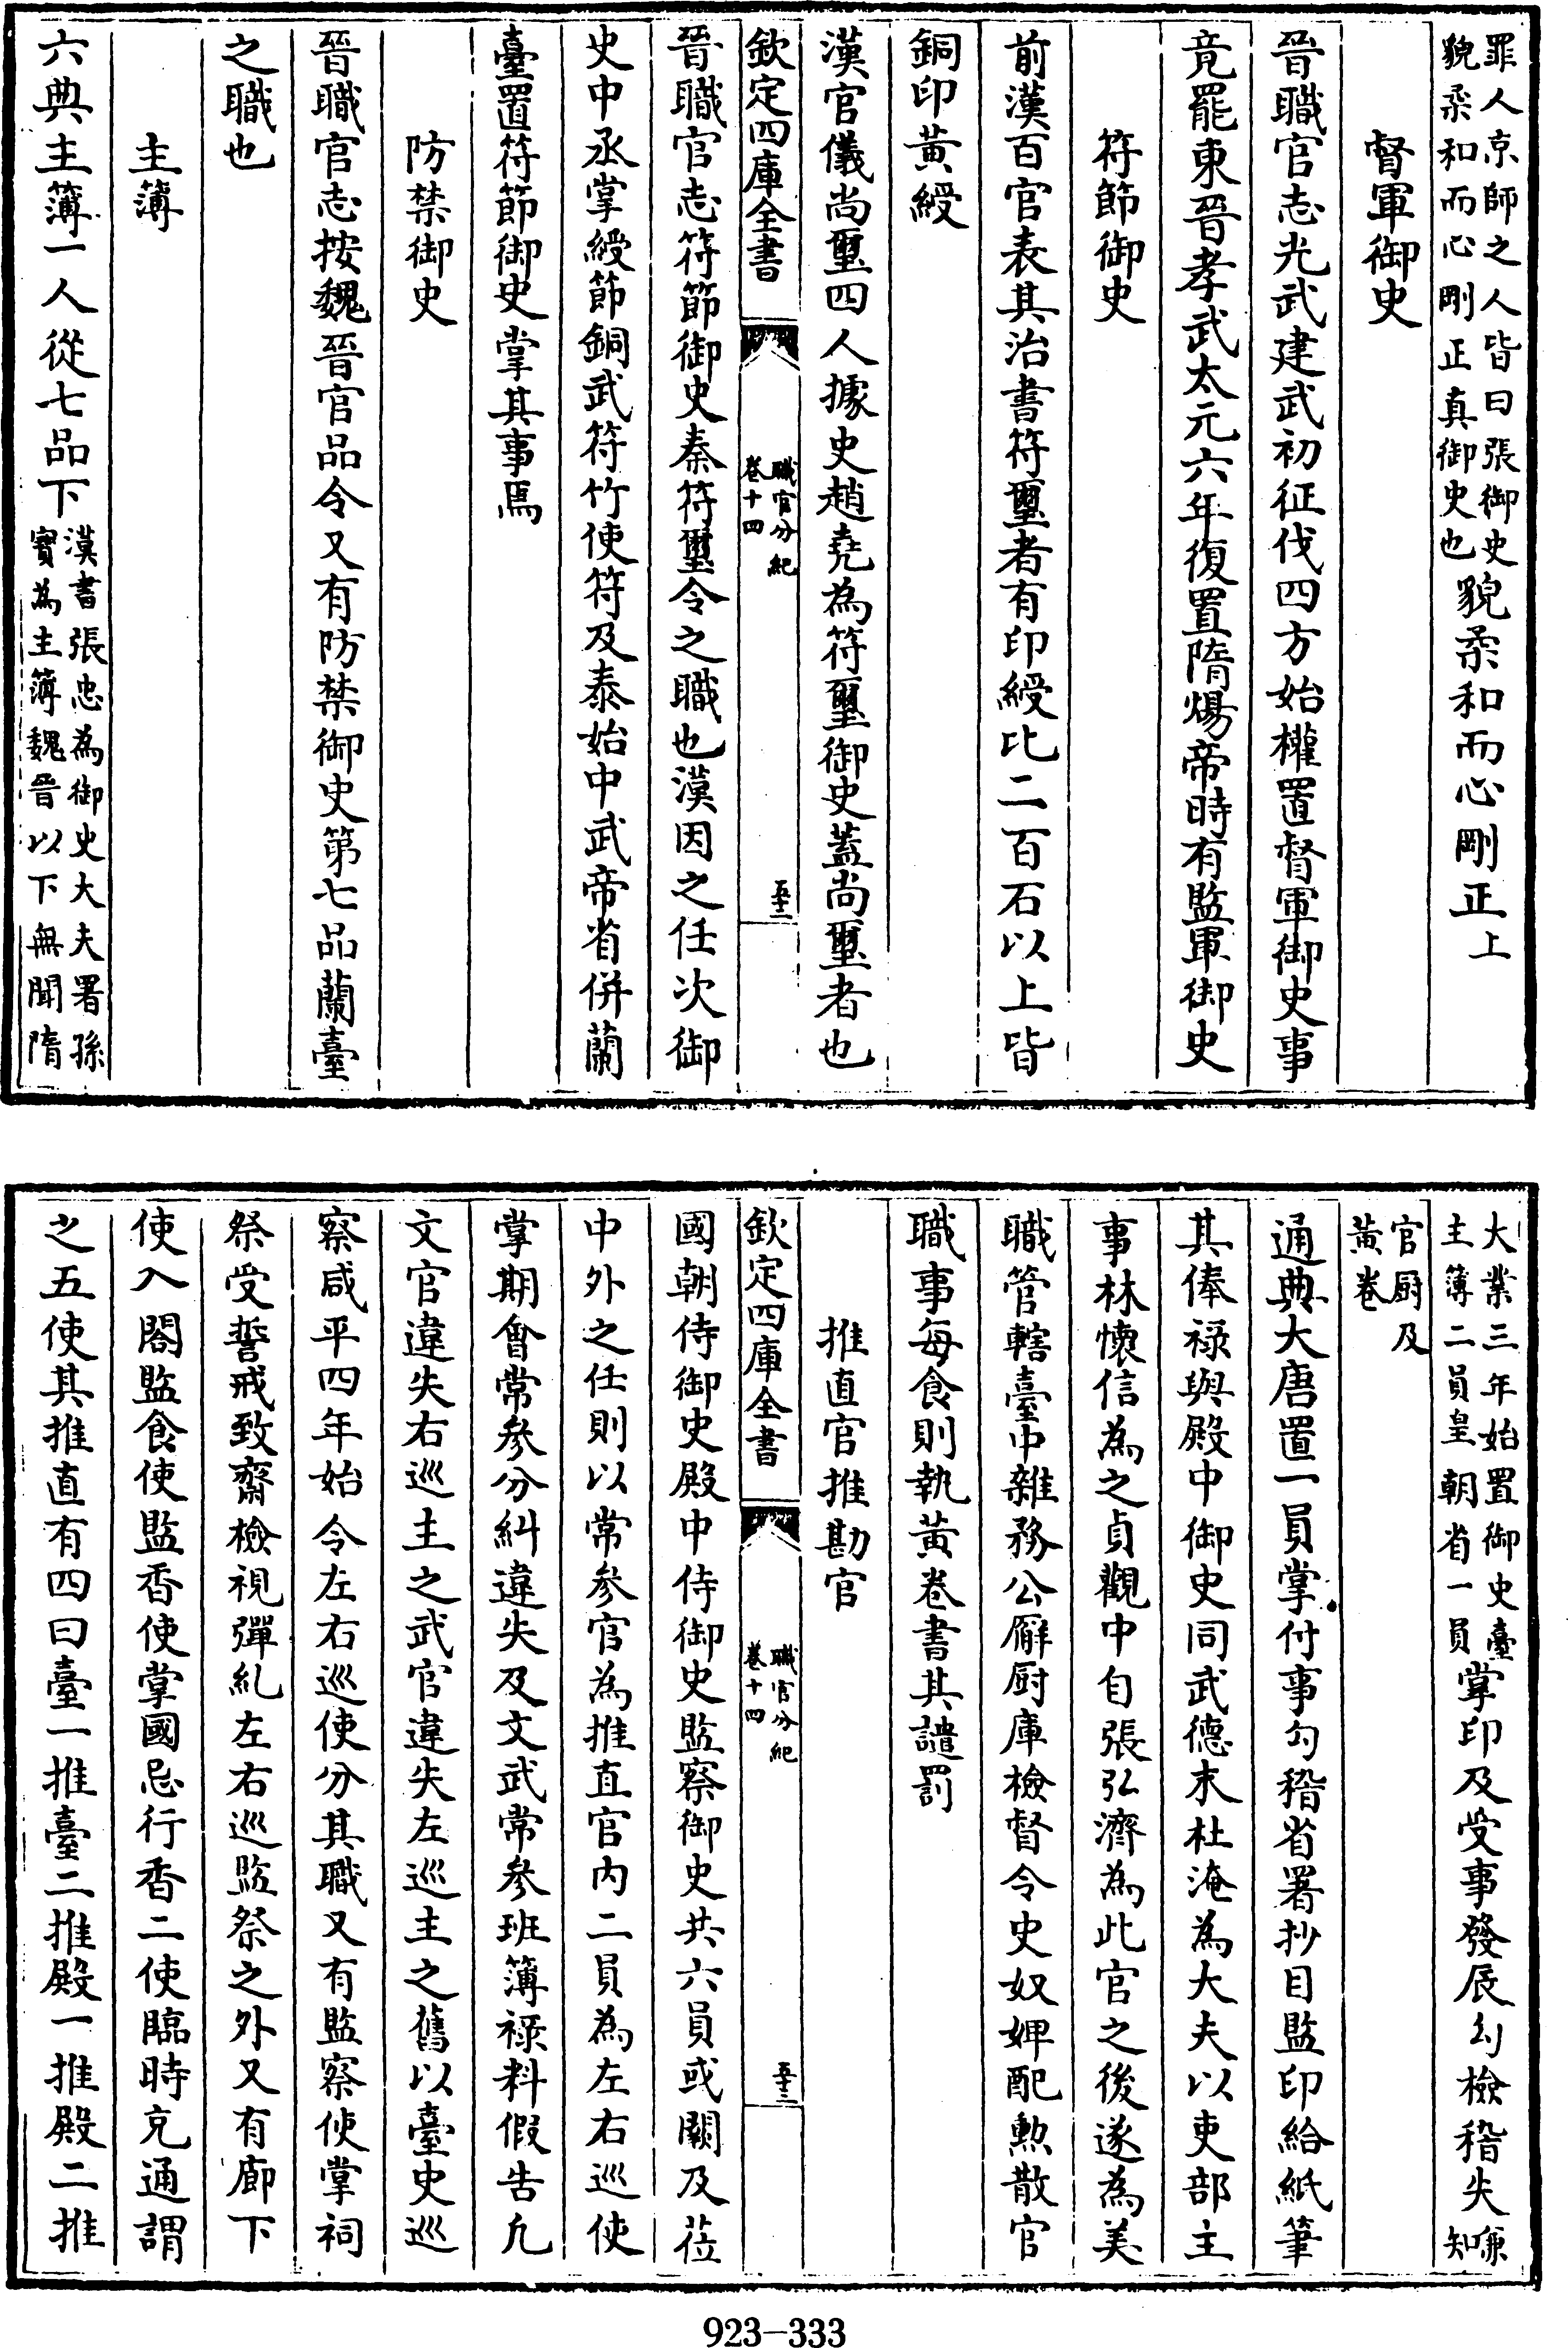 罪人京師之人皆曰張御史
貌柔和而心剛正真御史也
貌柔和而心剛正上
督軍御史
晉職官志光武建武初征伐四方始權置督軍御史事
竟罷東晉孝武太元六年復置隋煬帝時有監軍御史
符節御史
前漢百官表其治書符璽者有印綬比二百石以上皆
銅印黃綬
漢官儀尚璽四人據史趙堯為符璽御史蓋尚璽者也
欽定四庫全書
職官分紀
卷十四
五十二
晉職官志符節御史秦符璽令之職也漢因之任次御
史中丞掌綬節銅武符竹使符及泰始中武帝省併蘭
臺置符節御史掌其事焉
防禁御史
晉職官志按魏晉官品令又有防禁御史第七品蘭臺
之職也
主薄
六典主簿一人從七品下
漢書張忠為御史大夫署孫
寳為主簿魏晉以下無聞隋
大業三年始置御史臺
主簿二員皇朝省一員
掌印及受事發辰勾檢稽失
兼知
官厨及
黃卷
通典大唐置一員掌付事勾稽省署抄目監印給紙筆
其俸禄與殿中御史同武德末杜淹為大夫以吏部主
事林懷信為之貞觀中自張弘濟為此官之後遂為美
職管轄臺中雜務公廨厨庫檢督令史奴婢配勲散官
職事每食則執黃卷書其譴罰
推直官推勘官
欽定四庫全書
職官分紀
卷十四
五十三
國朝侍御史殿中侍御史監察御史共六員或闕及莅
中外之任則以常參官為推直官内二員為左右巡使
掌期會常參分糾違失及文武常參班簿禄料假告凢
文官違失右巡主之武官違失左巡主之舊以臺史巡
察咸平四年始令左右巡使分其職又有監察使掌祠
祭受誓戒致齋檢視彈糺左右巡監祭之外又有廊下
使入閤監食使監香使掌國忌行香二使臨時充通謂
之五使其推直有四曰臺一推臺二推殿一推殿二推
923-333